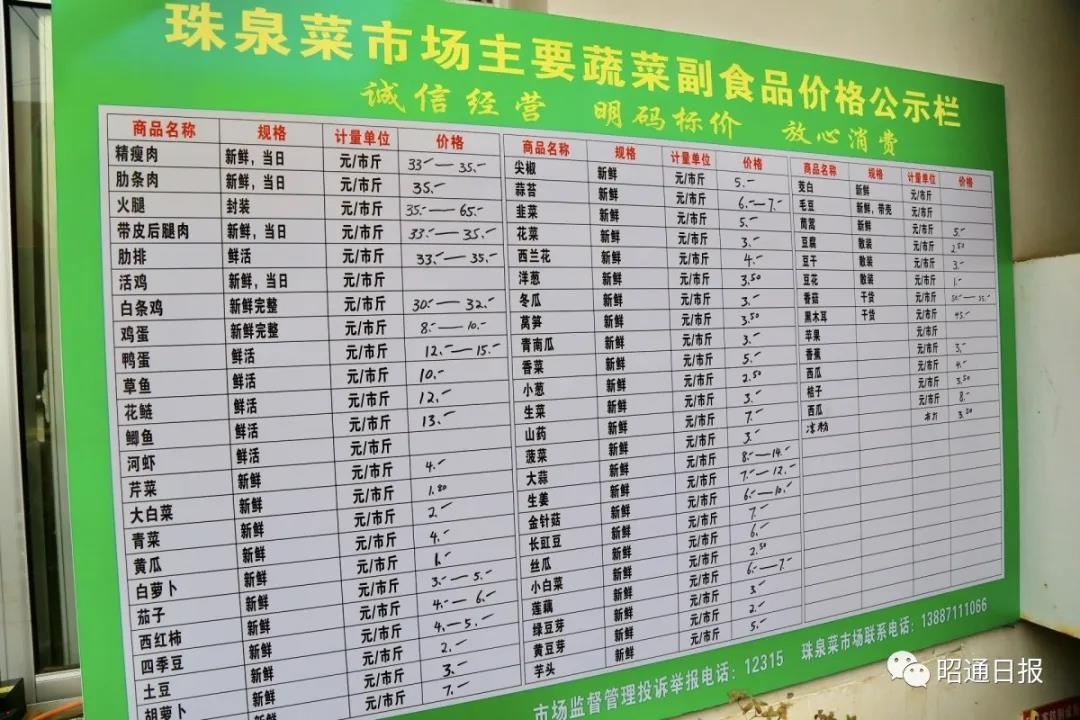 珠泉菜市场主要蔬菜副食品价格公示栏
诚信经营 明码标价 放心消费
商品名称 规格 计量单位 价格
精瘦肉 新鲜，当日 元/市斤 33.-—35.-
肋条肉 新鲜，当日 元/市斤 35.-
火腿 封装 元/市斤 35.-—65.-
带皮后腿肉 新鲜，当日 元/市斤 33.-—35.-
肋排 鲜活 元/市斤 33.-—35.-
活鸡 新鲜，当日 元/市斤
白条鸡 新鲜完整 元/市斤 30.-—32.-
鸡蛋 新鲜完整 元/市斤 8.-—10.-
鸭蛋 鲜活 元/市斤 12.-—15.-
草鱼 鲜活 元/市斤 10.-
花鲢 鲜活 元/市斤 12.-
鲫鱼 鲜活 元/市斤 13.-
河虾 鲜活 元/市斤
芹菜 新鲜 元/市斤 4.-
大白菜 新鲜 元/市斤 1.80
青菜 新鲜 元/市斤 2.-
黄瓜 新鲜 元/市斤 4.-
白萝卜 新鲜 元/市斤
茄子 新鲜 元/市斤 3.-—5.-
西红柿 新鲜 元/市斤 4.-—6.-
四季豆 新鲜 元/市斤 4.-—5.-
土豆 新鲜 元/市斤 2.-
胡萝卜 新鲜 元/市斤 3.-
元/市斤 7.-
商品名称 规格 计量单位 价格
尖椒 新鲜 元/市斤 5.-
蒜苔 新鲜 元/市斤 6.-—7.-
韭菜 新鲜 元/市斤 5.-
花菜 新鲜 元/市斤 3.-
西兰花 新鲜 元/市斤 4.-
洋葱 新鲜 元/市斤 3.50
冬瓜 新鲜 元/市斤 3.-
莴笋 新鲜 元/市斤 3.50
青南瓜 新鲜 元/市斤 3.-
香菜 新鲜 元/市斤 5.-
小葱 新鲜 元/市斤 2.50
生菜 新鲜 元/市斤 3.-
山药 新鲜 元/市斤 7.-
菠菜 新鲜 元/市斤 3.-
大蒜 新鲜 元/市斤 8.-—14.-
生姜 新鲜 元/市斤 7.-—12.-
金针菇 新鲜 元/市斤 6.-—10.-
长豇豆 新鲜 元/市斤 7.-
丝瓜 新鲜 元/市斤 6.-
小白菜 新鲜 元/市斤 2.50
莲藕 新鲜 元/市斤 6.-—7.-
绿豆芽 新鲜 元/市斤 3.-
黄豆芽 新鲜 元/市斤 2.-
芋头 新鲜 元/市斤 5.-
商品名称 规格 计量单位 价格
茭白 新鲜 元/市斤
毛豆 新鲜，带壳 元/市斤
茼蒿 新鲜 元/市斤 5.-
豆腐 散装 元/市斤 2.50
豆干 散装 元/市斤 3.-
豆花 散装 元/市斤 1.-
香菇 干货 元/市斤 50.-—55.-
黑木耳 干货 元/市斤 45.-
苹果 元/市斤
香蕉 元/市斤 3.-
西瓜 元/市斤 4.-
桔子 元/市斤 3.50
西瓜 元/市斤 8.-
凉粉 市斤 3.50
市场监督管理投诉举报电话：12315 珠泉菜市场联系电话：13887111066
昭通日报